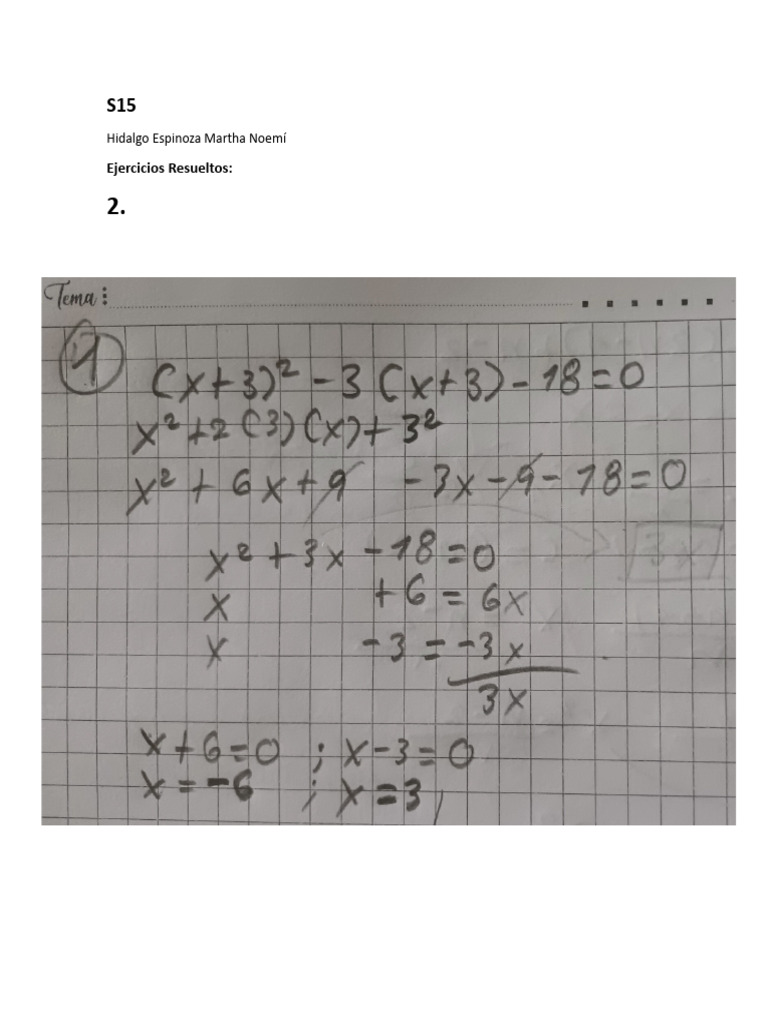 S15
Hidalgo Espinoza Martha Noemí
Ejercicios Resueltos:
2.
Tema:
1
(x+3)² - 3 (x+3) - 18 = 0
x² + 2 (3) (x) + 3²
x² + 6x + 9 - 3x - 9 - 18 = 0
x² + 3x - 18 = 0
x + 6 = 6x
x - 3 = -3x
3x
x + 6 = 0 ; x - 3 = 0
x = -6 ; x = 3